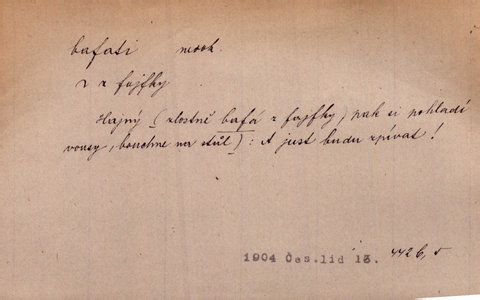 bafati nedok.
z fajfky
Hajný (zlostně bafá z fajfky, pak si pohladí
vousy, bouchne na stůl): A just budu zpívat!
1904 Čes.lid 13. 442 b,